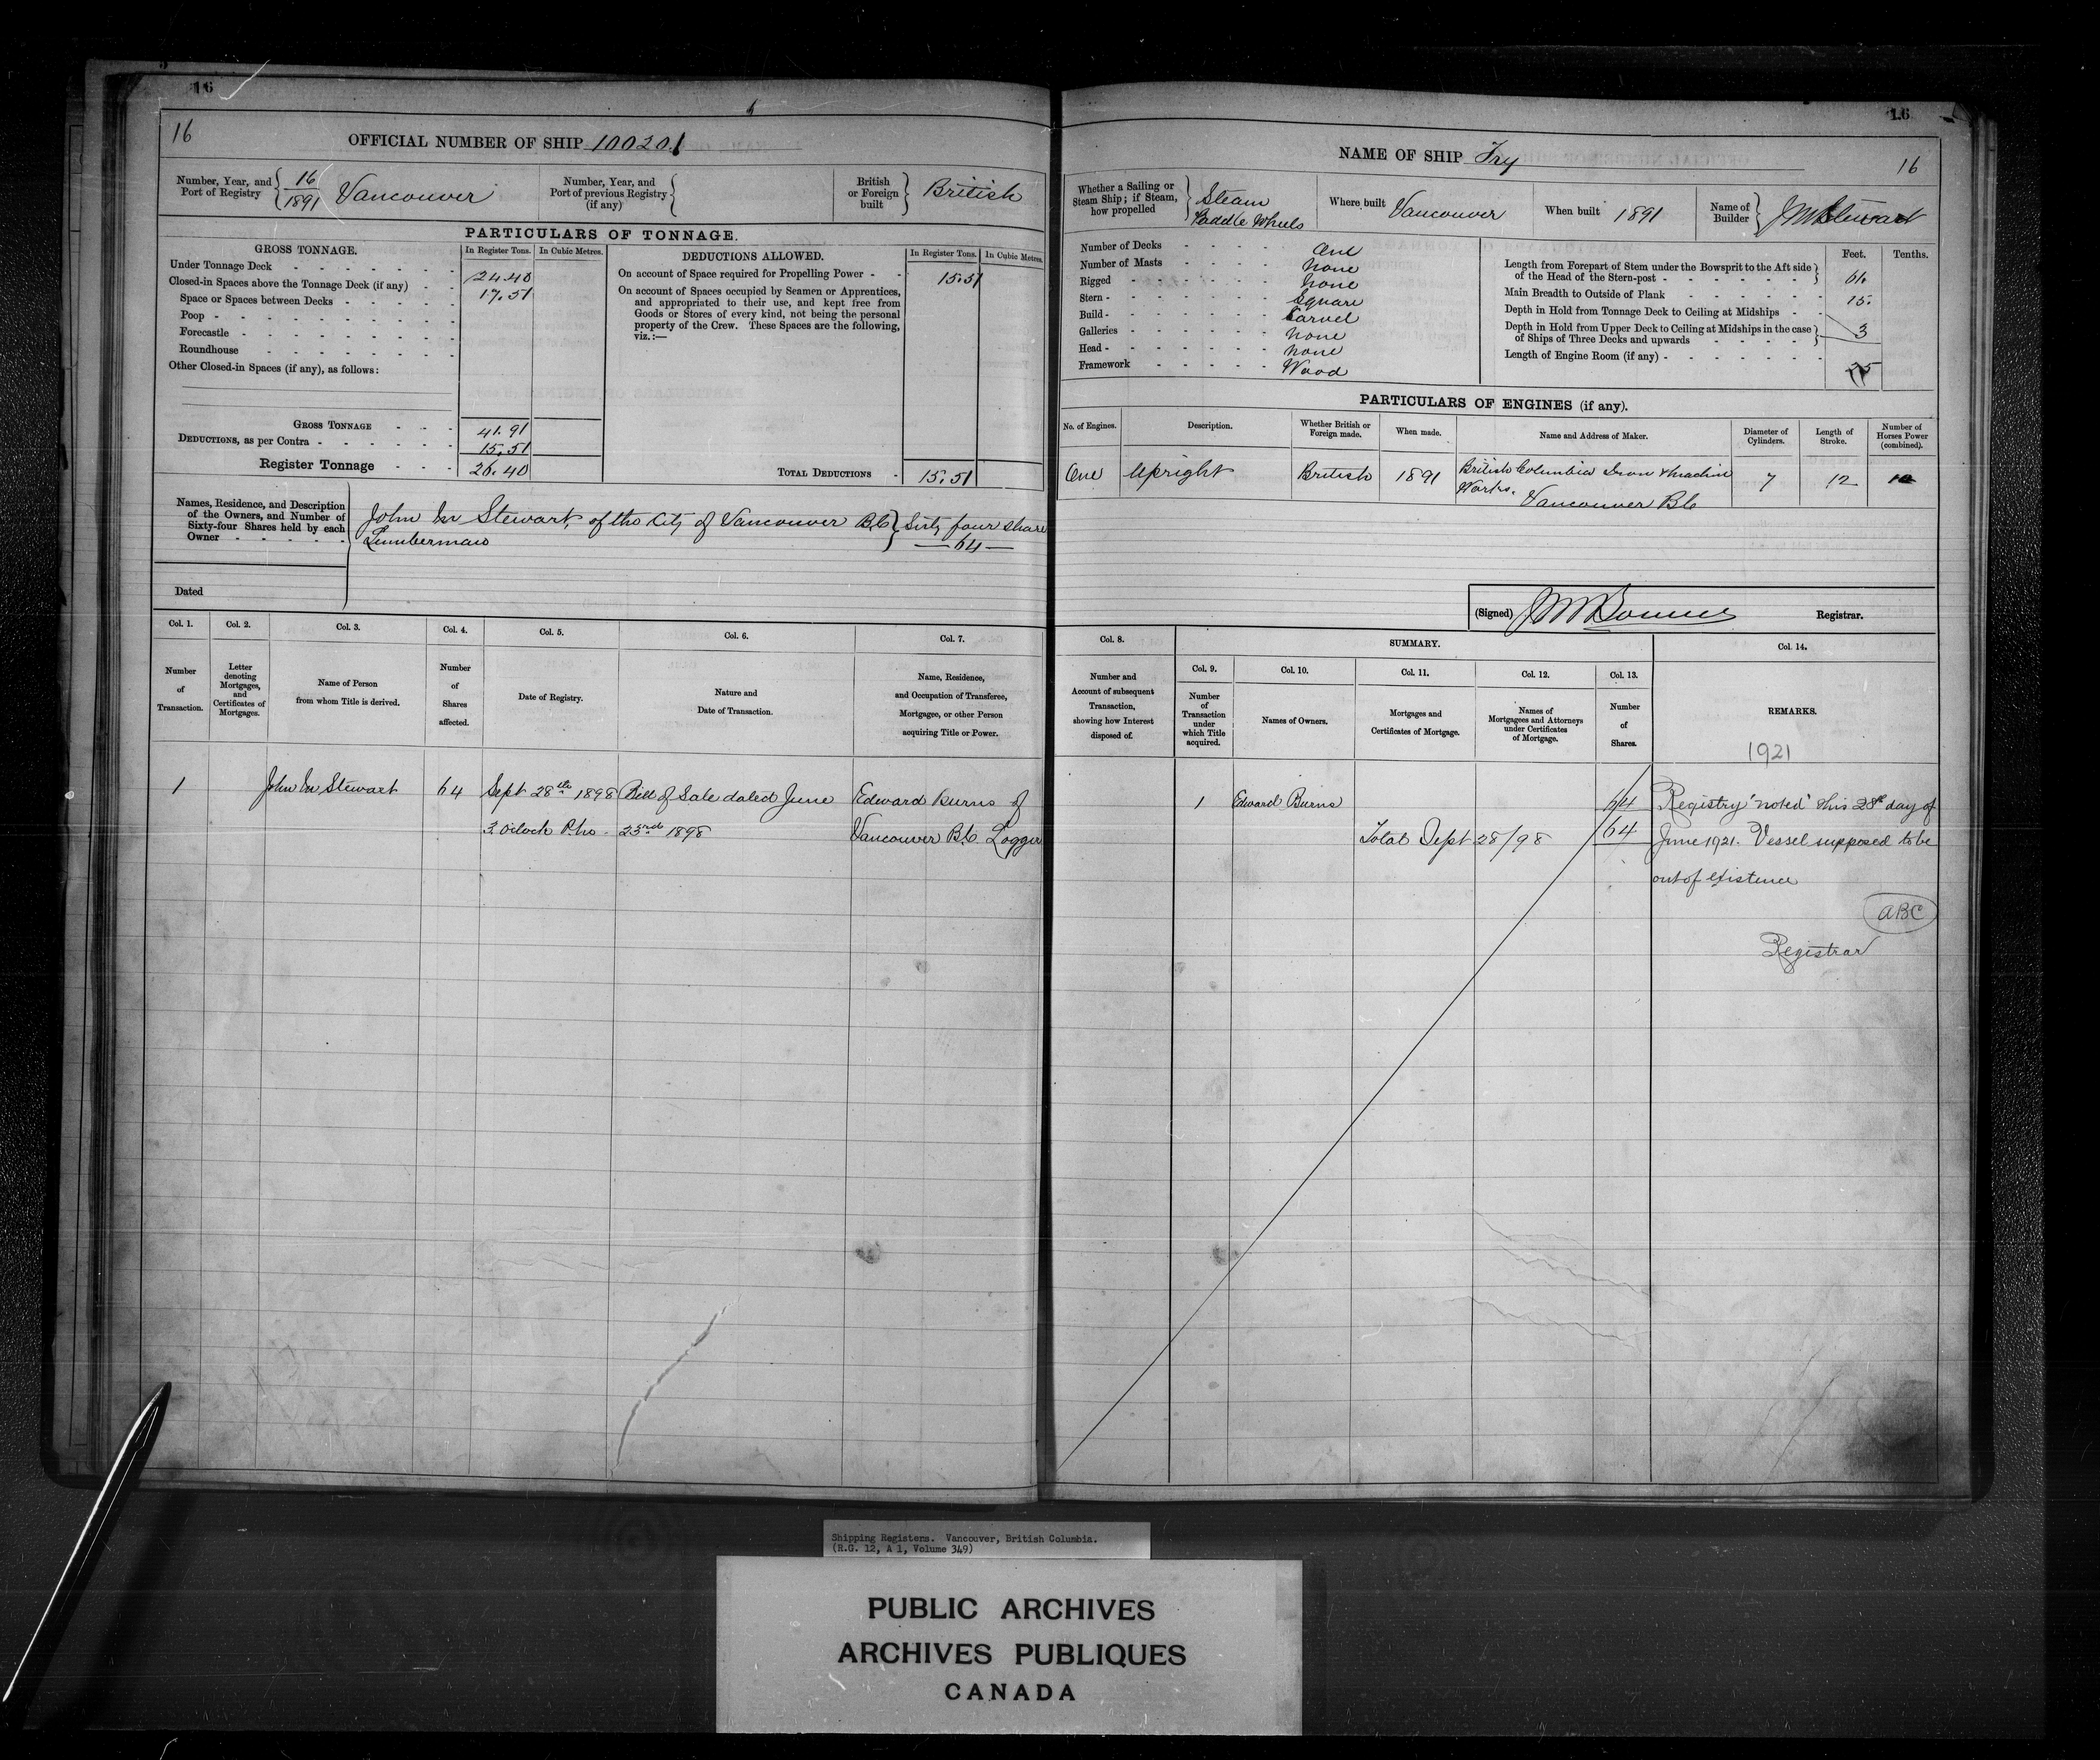 16
16
OFFICIAL NUMBER OF SHIP 100201
Number, Year, and Port of Registry { 16/1891 Vancouver
Number, Year, and Port of previous Registry (if any) {
British or Foreign built } British
PARTICULARS OF TONNAGE.
GROSS TONNAGE. In Register Tons. In Cubic Metres.
Under Tonnage Deck 24.40
Closed-in Spaces above the Tonnage Deck (if any) 17.51
Space or Spaces between Decks
Poop
Forecastle
Roundhouse
Other Closed-in Spaces (if any), as follows:
GROSS TONNAGE 41.91
DEDUCTIONS, as per Contra 15.51
Register Tonnage 26.40
DEDUCTIONS ALLOWED. In Register Tons. In Cubic Metres.
On account of Space required for Propelling Power 15.51
On account of Spaces occupied by Seamen or Apprentices,
and appropriated to their use, and kept free from
Goods or Stores of every kind, not being the personal
property of the Crew. These Spaces are the following,
viz.:—
TOTAL DEDUCTIONS 15.51
Names, Residence, and Description
of the Owners, and Number of
Sixty-four Shares held by each
Owner
John M Stewart, of the City of Vancouver B.C } Sixty four share
Lumberman — 64 —
Dated
Col. 1. Col. 2. Col. 3. Col. 4. Col. 5. Col. 6. Col. 7.
Number of Transaction.
Letter denoting Mortgages, and Certificates of Mortgages.
Name of Person from whom Title is derived.
Number of Shares affected.
Date of Registry.
Nature and Date of Transaction.
Name, Residence, and Occupation of Transferee, Mortgagee, or other Person acquiring Title or Power.
1 John M Stewart 64 Sept 28th 1898 Bill of Sale dated June Edward Burns of
3 Oclock P.M. 23rd 1898 Vancouver B.C. Logger
16
16
NAME OF SHIP
Whether a Sailing or Steam Ship; if Steam, how propelled } Steam Paddle Wheels
Where built Vancouver
When built 1891
Name of Builder } J M Stewart
Number of Decks One
Number of Masts None
Rigged None
Stern Square
Build Carvel
Galleries None
Head None
Framework Wood
Feet. Tenths.
Length from Forepart of Stem under the Bowsprit to the Aft side of the Head of the Stern-post 61.
Main Breadth to Outside of Plank 15.
Depth in Hold from Tonnage Deck to Ceiling at Midships
Depth in Hold from Upper Deck to Ceiling at Midships in the case of Ships of Three Decks and upwards 3
Length of Engine Room (if any)
PARTICULARS OF ENGINES (if any).
No. of Engines. Description. Whether British or Foreign made. When made. Name and Address of Maker. Diameter of Cylinders. Length of Stroke. Number of Horses Power (combined).
One Upright British 1891 British Columbia Iron & Machine Works. Vancouver B C 7 12
(Signed) Registrar.
Col. 8. SUMMARY. Col. 14.
Col. 9. Col. 10. Col. 11. Col. 12. Col. 13.
Number and Account of subsequent Transaction, showing how Interest disposed of.
Number of Transaction under which Title acquired.
Names of Owners.
Mortgages and Certificates of Mortgage.
Names of Mortgagees and Attorneys under Certificates of Mortgage.
Number of Shares.
REMARKS.
1921
1 Edward Burns 64 Registry 'noted' this 28th day of
Total Sept 28/98 64 June 1921. Vessel supposed to be
out of existence
ABC
Registrar
Shipping Registers. Vancouver, British Columbia.
(R.G. 12, A 1, Volume 349)
PUBLIC ARCHIVES
ARCHIVES PUBLIQUES
CANADA